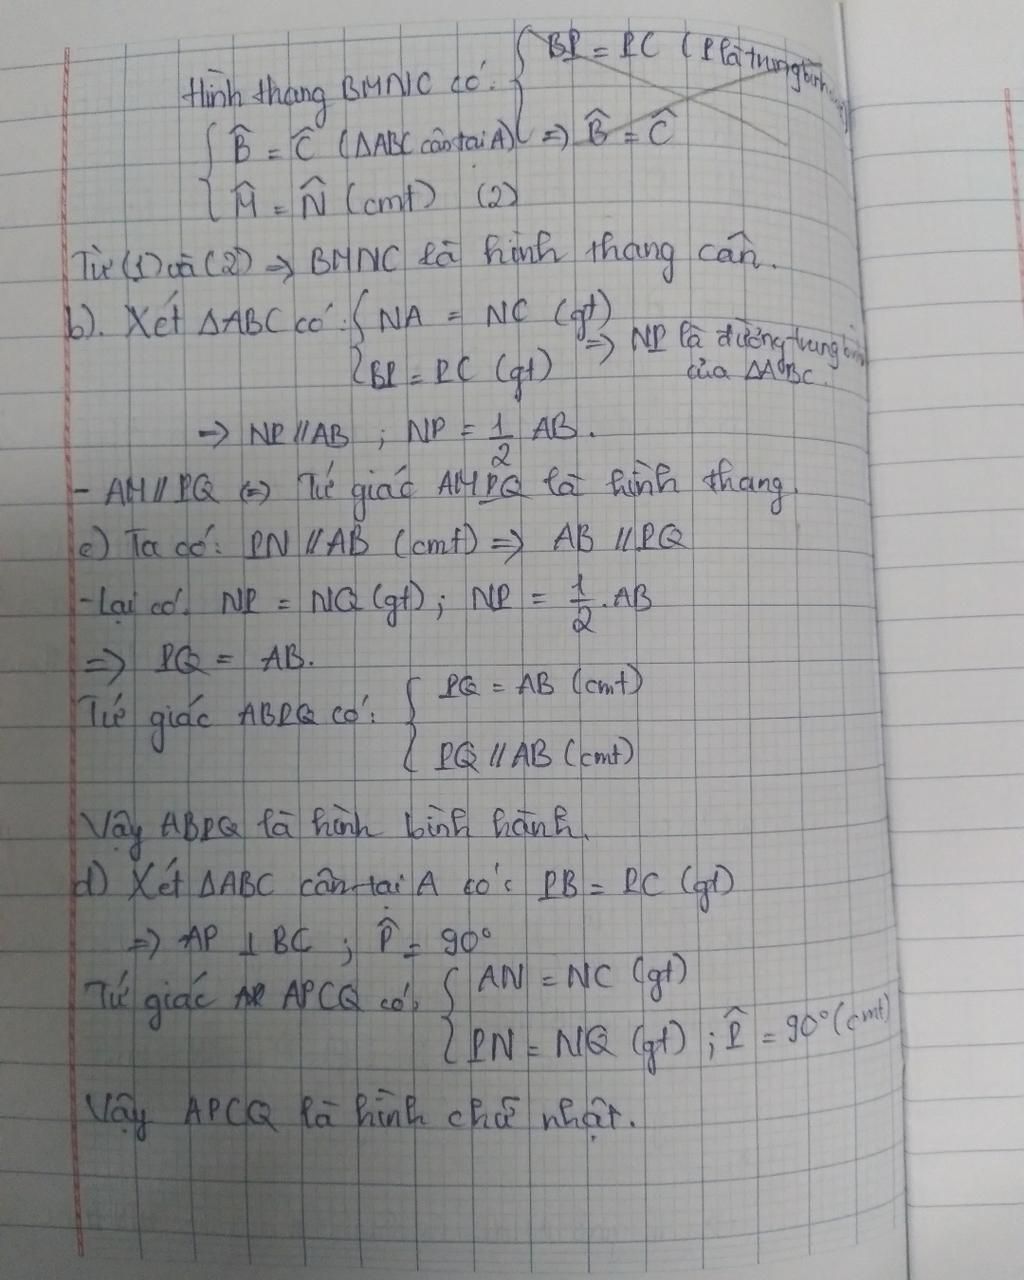 Hình thang BMNC có: { BP = PC (P là trung bình
{ B̂ = Ĉ (ΔABC cân tại A) => B̂ = Ĉ
{ M̂ = N̂ (cmt) (2)
Từ (1) và (2) => BMNC là hình thang cân.
b). Xét ΔABC có: { NA = NC (gt)
{ BP = PC (gt) => NP là đường trung bình
của ΔABC.
=> NP // AB ; NP = 1/2 AB.
- AM // PQ <=> Tứ giác AMPQ là hình thang.
c) Ta có: PN // AB (cmt) => AB // PQ
- Lại có: NP = NQ (gt) ; NP = 1/2 . AB
=> PQ = AB.
Tứ giác ABPQ có: { PQ = AB (cmt)
{ PQ // AB (cmt)
Vậy ABPQ là hình bình hành.
d) Xét ΔABC cân tại A có: PB = PC (gt)
=> AP ⊥ BC ; P̂ = 90°
Tứ giác APCQ có: { AN = NC (gt)
{ PN = NQ (gt) ; P̂ = 90° (cmt)
Vậy APCQ là hình chữ nhật.